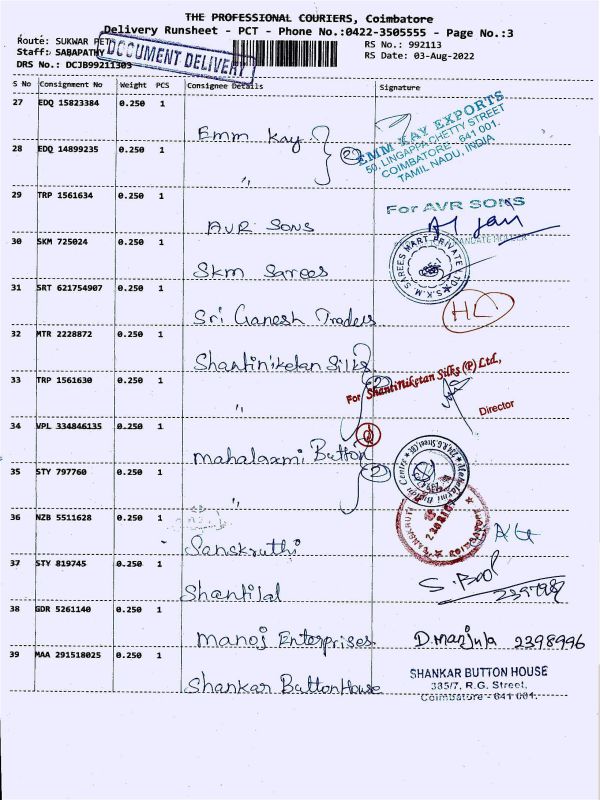 THE PROFESSIONAL COURIERS, Coimbatore
Delivery Runsheet - PCT - Phone No.:0422-3505555 - Page No.:3
Route: SUKWAR PET
RS No.: 992113
Staff: SABAPATHY
RS Date: 03-Aug-2022
DRS No.: DCJB99211303
DOCUMENT DELIVERY
S No Consignment No Weight PCS Consignee Details Signature
27 EDQ 15823384 0.250 1 Emm Kay
28 EDQ 14899235 0.250 1 "
2
EMM KAY EXPORTS
50, LINGAPPA CHETTY STREET
COIMBATORE 641 001.
TAMIL NADU, INDIA
29 TRP 1561634 0.250 1 AVR SONS
For AVR SONS
30 SKM 725024 0.250 1 Skm Sarees
S.K.M. SAREES MART PRIVATE LTD
31 SRT 621754907 0.250 1 Sri Ganesh Traders
32 MTR 2228872 0.250 1 Shantiniketan Silks
33 TRP 1561630 0.250 1 "
2
For ShantiNiketan Silks (P) Ltd.,
Director
34 VPL 334846135 0.250 1 Mahalaxmi Button
35 STY 797760 0.250 1 "
2
36 NZB 5511628 0.250 1 Sanskruthi
37 STY 819745 0.250 1 Shantilal
38 GDR 5261140 0.250 1 Manoj Enterprises D.Manjula 2398996
39 MAA 291518025 0.250 1 Shankar Button House
SHANKAR BUTTON HOUSE
385/7, R.G. Street,
Coimbatore - 641 001.